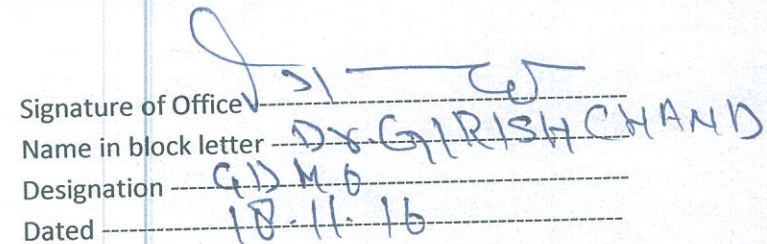 Signature of Office
Name in block letter Dr. GIRISH CHAND
Designation GDMO
Dated 18.11.16